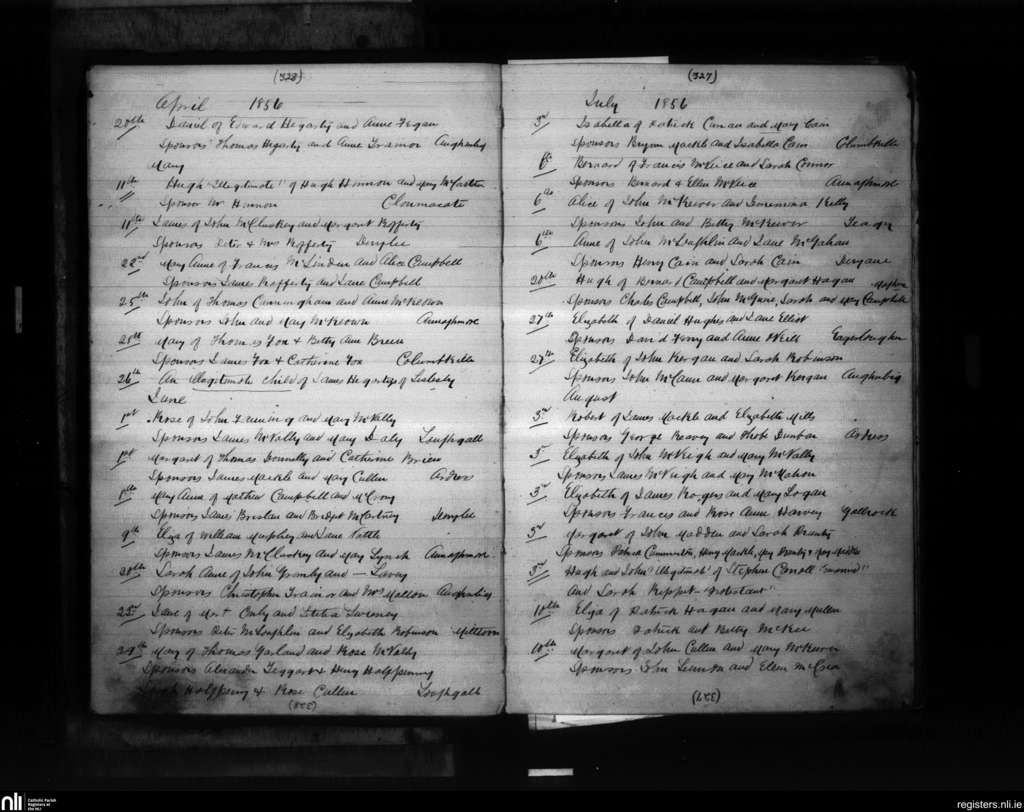 (328)
April 1856
20th Daniel of Edward Hegarty and Anne Fegan
Sponsors Thomas Hegarty and Anne Trainor Aughnlig
May
11th Hugh "Illegitimate" of Hugh Hinnon and May McCarten
Sponsor Mr Hinnon Clonmacate
11th James of John McCluskey and Margaret Rafferty
Sponsors Peter & Rafferty Derrylee
22nd Mary Anne of Francis McLinden and Alice Campbell
Sponsors James Rafferty and Jane Campbell
25th John of Thomas Cunningham and Anne McKeown
Sponsors John and Mary McKeown Annaghmore
25th Mary of Thomas Fox & Betty Ann Breen
Sponsors James Fox & Catherine Fox Columbkille
26th An illegitimate child of James Hegarty of
June
1st Rose of John and Mary McNally
Sponsors James McNally and Mary Daly Loughgall
1st Margaret of Thomas Donnelly and Catherine Brien
Sponsors James Mackle and May Cullen Ardress
Mary Anne of Mathew Campbell and McCrory
Sponsors James Breslen and Bridget McCartney
9th Eliza of William Murphy and Jane Tottle
Sponsors James McCloskey and May Lynch Annaghmore
20th Sarah Anne of John Grimly and — Lavery
Sponsors Christopher Trainor and Mrs Mallon Aughnlig
23rd Jane of and Letitia Sweeney
Sponsors Peter McLoughlin and Elizabeth Robinson Milltown
29th Mary of Thomas Garland and Rose McNally
Sponsors Alexander Taggart & Henry Halfpenny
Sarah Halfpenny & Rose Cullen Loughgall
(328)
(327)
July 1856
3rd Isabella of Patrick Curran and Mary Cain
Sponsors Bryan Mackle and Isabella Cain Columbkille
6th Bernard of Francis McKeice and Sarah Connor
Sponsors Bernard & Ellen McKeice Annaghmore
6th Alice of John McKeever and Jemima Kelly
Sponsors John and Betty McKeever Teaguy
6th Anne of John McLoughlin and Jane McGahan
Sponsors Henry Cain and Sarah Cain Derryane
20th Hugh of Bernard Campbell and Margaret Hagan
Sponsors Charles Campbell, John McGuire, Sarah and May Campbell
27th Elizabeth of Daniel Hughes and Jane Elliot
Sponsors David Ferry and Anne Neill Eagerlougher
27th Elizabeth of John Keegan and Sarah Robinson
Sponsors John McCann and Margaret Keegan Aughnlig
August
3rd Robert of James Mackle and Elizabeth Mills
Sponsors George Reavey and Phobe Dunbar Ardress
3rd Elizabeth of John McVeigh and Mary McNally
Sponsors James McVeigh and May McMahon
3rd Elizabeth of James Rodgers and Mary Logan
Sponsors Frances and Rose Anne Harvey Gallrock
3rd Margaret of John Madden and Sarah
Sponsors Patrick Henry Mackle, May & May Mackle
3rd Hugh and John "Illegitimate" of Stephen Carroll "married"
And Sarah "Protestant"
10th Eliza of Patrick Hagan and Mary Mullen
Sponsors Patrick and Betty McKee
10th Margaret of John Cullen and Mary McKeever
Sponsors John Lennon and Ellen McCrea
(327)
nli
Catholic Parish
Registers at
the NLI
registers.nli.ie